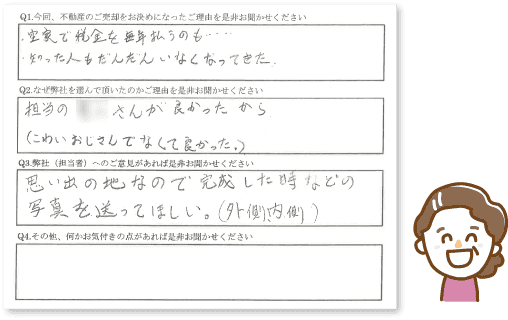 Q1.今回、不動産のご売却をお決めになったご理由を是非お聞かせください
・空家で税金を毎年払うのも‥‥
・知った人もだんだんいなくなってきた。
Q2.なぜ弊社を選んで頂いたのかご理由を是非お聞かせください
担当の さんが良かったから
(こわいおじさんでなくて良かった。)
Q3.弊社（担当者）へのご意見があれば是非お聞かせください
思い出の地なので完成した時などの
写真を送ってほしい。(外側内側)
Q4.その他、何かお気付きの点があれば是非お聞かせください